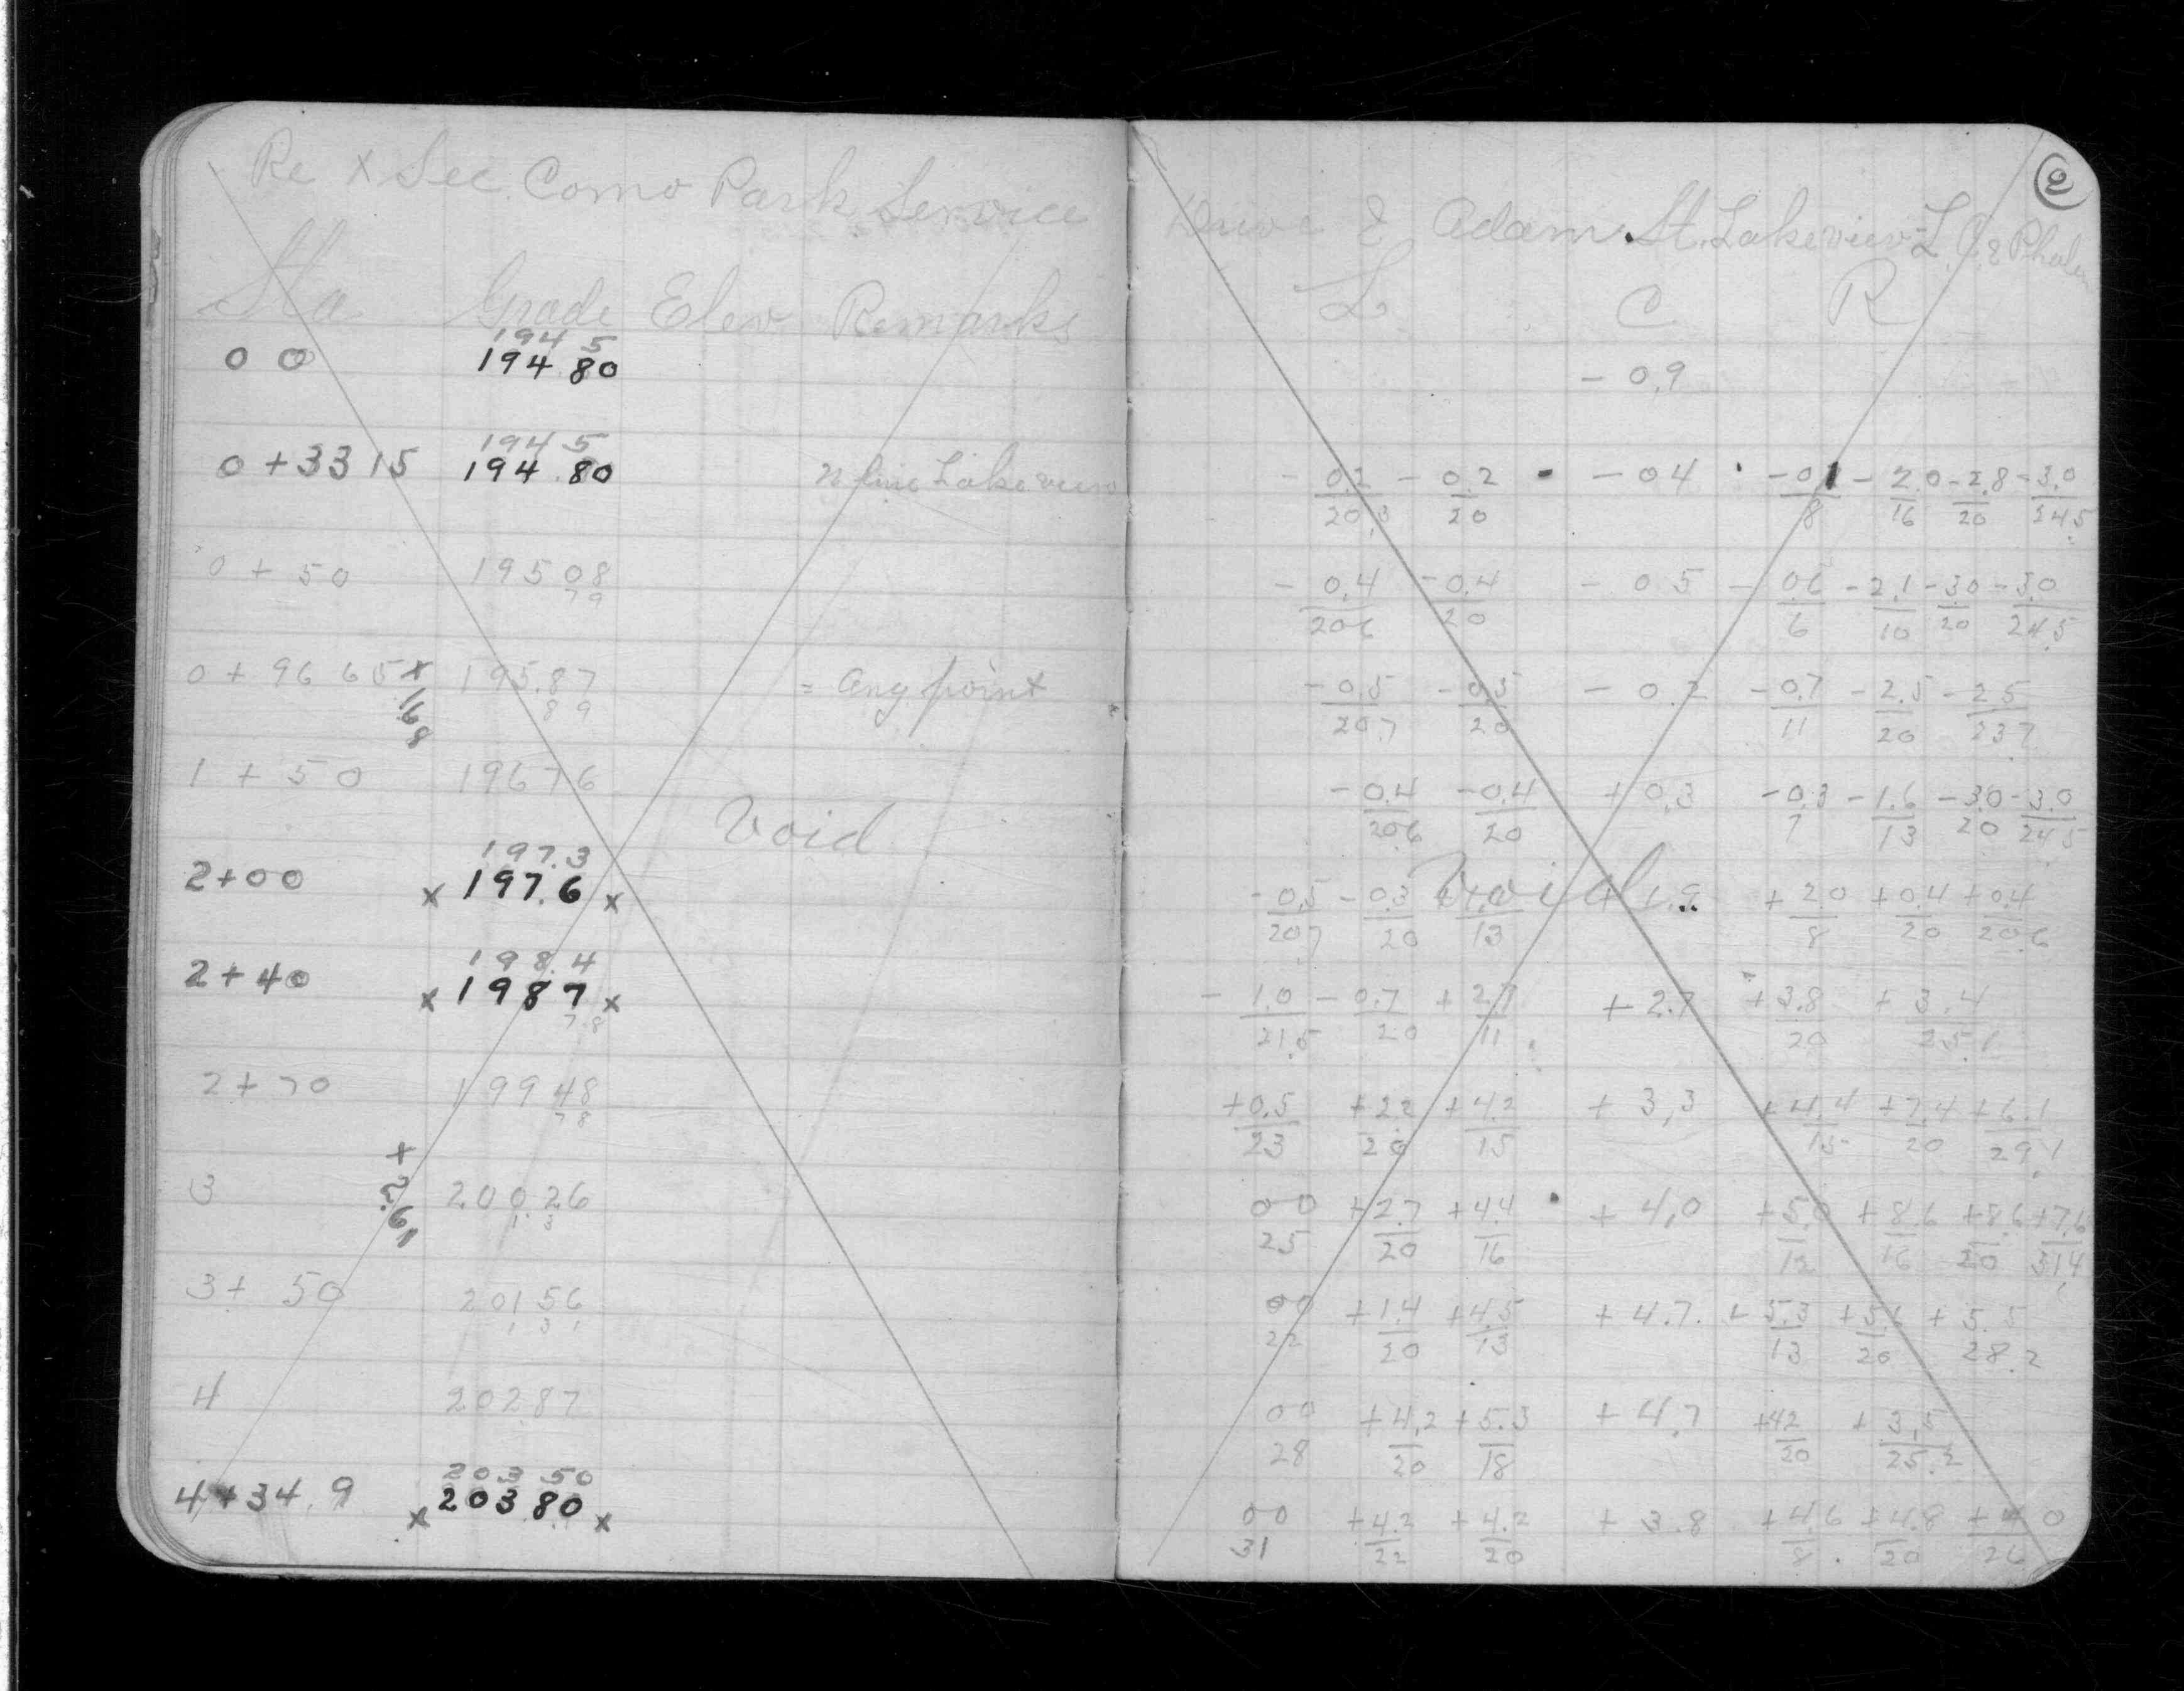 Re x Sec. Como Park Service
Sta Grade Elev Remarks
194 5
0 0 194.80
194 5
0 + 33 15 194.80 N line Lakeview
0 + 50 195 08
79
0 + 96 65 + 195.87 = Ang. point
1.68
8 9
1 + 50 196 76
Void
197.3
2+00 x 197.6 x
198.4
2+40 x 198 7 x
7 8
2 + 70 199 48
78
+
3 200.26
1.3
3 + 50 201 56
1 3 1
4 202 87
203 50
4+34.9 x 203 80 x
2
Drive & Adam St. Lakeview - L.O. & Phalen
L C R
- 0.9
- 0.2 - 0.2 - 0 4 - 0 1 - 2.0 - 2.8 - 3.0
20.3 20 8 16 20 24 5
- 0.4 - 0.4 - 0 5 - 0.6 - 2.1 - 3.0 - 3.0
20 6 20 6 10 20 24.5
- 0.5 - 0.5 - 0.2 - 0.7 - 2.5 - 2 5
20.7 20 11 20 23 7
- 0.4 - 0.4 + 0.3 - 0.3 - 1.6 - 3.0 - 3.0
20.6 20 7 13 20 24 5
- 0.5 - 0.3 + 1.9 + 2.0 + 0.4 + 0.4
Void
20 7 20 13 8 20 20.6
- 1.0 - 0.7 + 2.7 + 2.7 + 3.8 + 3.4
21.5 20 11 20 25.1
+ 0.5 + 2.2 + 4.2 + 3.3 + 4.4 + 7.4 + 6.1
23 20 15 15 20 29.1
0 0 + 2.7 + 4.4 + 4.0 + 5.0 + 8.6 + 8.6 + 7.6
25 20 16 12 16 20 31.4
0 0 + 1.4 + 4.5 + 4.7 + 5.3 + 5.6 + 5.5
22 20 13 13 20 28.2
0 0 + 4.2 + 5.3 + 4.7 + 4 2 + 3.5
28 20 18 20 25.2
0 0 + 4.2 + 4.2 + 3.8 + 4.6 + 4.8 + 4 0
31 22 20 8 20 26